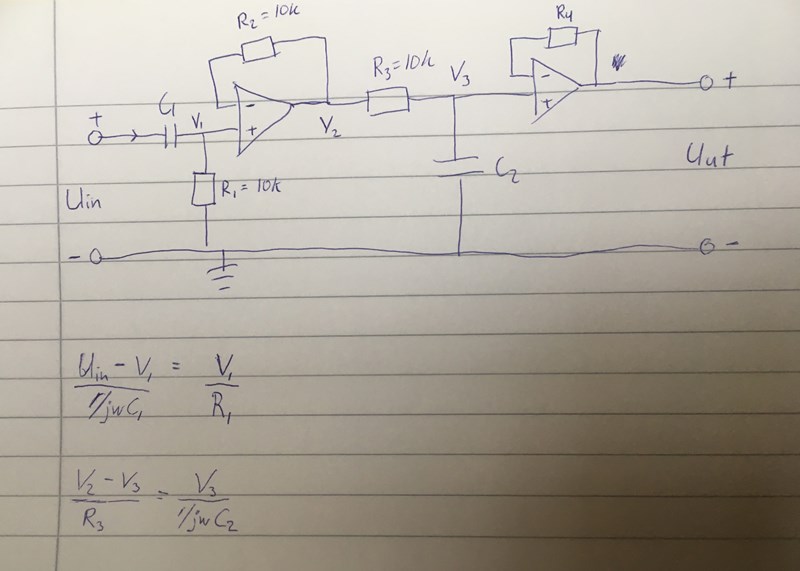 R₂ = 10k
R₄
R₃ = 10k
V₃
C₁
V₁
-
+
V₂
-
+
+
+
C₂
Uut
Uin
R₁ = 10k
-
-
Uin - V₁ / 1/jwC₁ = V₁ / R₁
V₂ - V₃ / R₃ = V₃ / 1/jwC₂